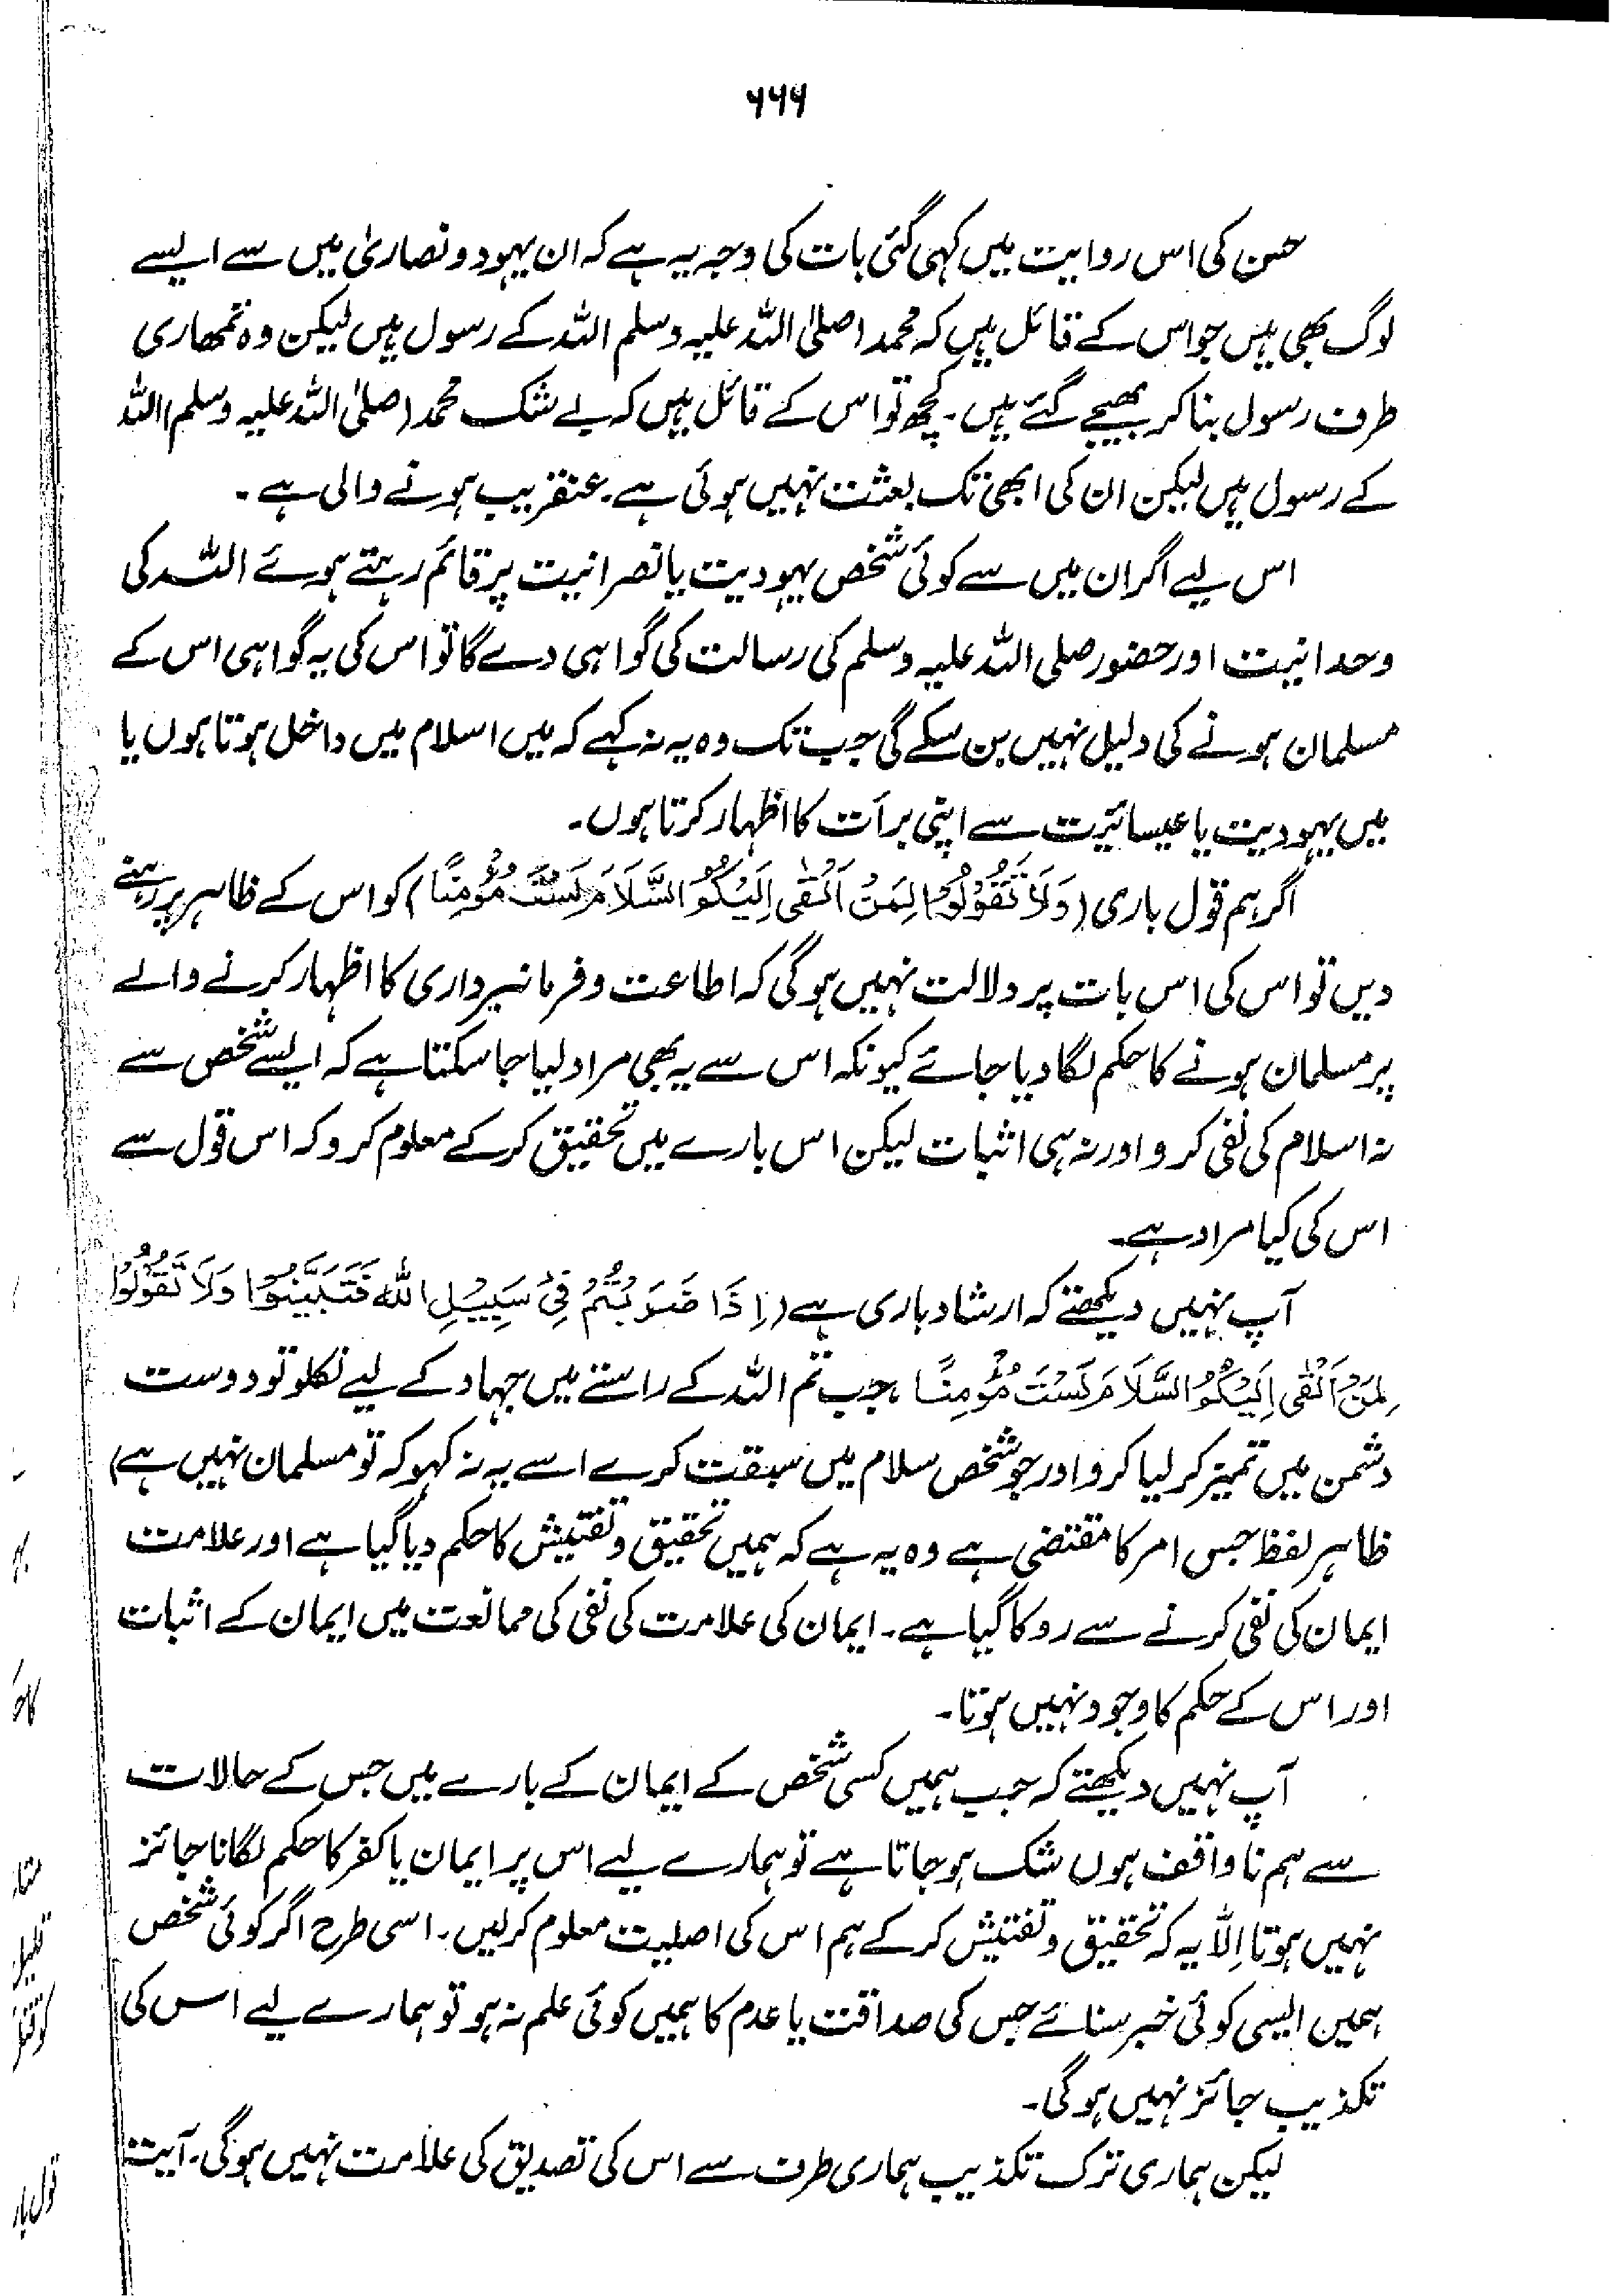 ۶۶۶
حسن کی اس روایت میں کہی گئی بات کی وجہ یہ ہے کہ ان یہود و نصاریٰ میں سے ایسے
لوگ بھی ہیں جو اس کے قائل ہیں کہ محمد اصلی اللہ علیہ وسلم اللہ کے رسول ہیں لیکن وہ تمھاری
طرف رسول بنا کر بھیجے گئے ہیں۔ کچھ تو اس کے قائل ہیں کہ بے شک محمد (صلی اللہ علیہ وسلم اللہ
کے رسول ہیں لیکن ان کی ابھی تک بعثت نہیں ہوئی ہے۔ عنقریب ہونے والی ہے۔
اس لیے اگر ان میں سے کوئی شخص یہودیت یا نصرانیت پر قائم رہتے ہوئے اللہ کی
وحدانیت اور حضور صلی اللہ علیہ وسلم کی رسالت کی گواہی دے گا تو اس کی یہ گواہی اس کے
مسلمان ہونے کی دلیل نہیں بن سکے گی جب تک وہ یہ نہ کہے کہ میں اسلام میں داخل ہوتا ہوں یا
میں یہودیت یا عیسائیت سے اپنی برأت کا اظہار کرتا ہوں۔
اگر ہم قول باری (وَلَا تَقُوْلُوْا لِمَنْ اَلْقٰى اِلَيْكُمُ السَّلَامَ لَسْتَ مُؤْمِنًا) کو اس کے ظاہر پر رہنے
دیں تو اس کی اس بات پر دلالت نہیں ہو گی کہ اطاعت و فرمانبرداری کا اظہار کرنے والے
پر مسلمان ہونے کا حکم لگا دیا جائے کیونکہ اس سے یہ بھی مراد لیا جا سکتا ہے کہ ایسے شخص سے
نہ اسلام کی نفی کرو اور نہ ہی اثبات لیکن اس بارے میں تحقیق کر کے معلوم کرو کہ اس قول سے
اس کی کیا مراد ہے۔
آپ نہیں دیکھتے کہ ارشاد باری ہے (اِذَا ضَرَبْتُمْ فِيْ سَبِيْلِ اللهِ فَتَبَيَّنُوْا وَلَا تَقُوْلُوْا
لِمَنْ اَلْقٰى اِلَيْكُمُ السَّلَامَ لَسْتَ مُؤْمِنًا، جب تم اللہ کے راستے میں جہاد کے لیے نکلو تو دوست
دشمن میں تمیز کر لیا کرو اور جو شخص سلام میں سبقت کرے اسے یہ نہ کہو کہ تو مسلمان نہیں ہے)
ظاہر لفظ جس امر کا مقتضی ہے وہ یہ ہے کہ ہمیں تحقیق و تفتیش کا حکم دیا گیا ہے اور علامت
ایمان کی نفی کرنے سے روکا گیا ہے۔ ایمان کی علامت کی نفی کی ممانعت میں ایمان کے اثبات
اور اس کے حکم کا وجود نہیں ہوتا۔
آپ نہیں دیکھتے کہ جب ہمیں کسی شخص کے ایمان کے بارے میں جس کے حالات
سے ہم نا واقف ہوں شک ہو جاتا ہے تو ہمارے لیے اس پر ایمان یا کفر کا حکم لگانا جائز
نہیں ہوتا اِلّا یہ کہ تحقیق و تفتیش کر کے ہم اس کی اصلیت معلوم کر لیں۔ اسی طرح اگر کوئی شخص
ہمیں ایسی کوئی خبر سنائے جس کی صداقت یا عدم کا ہمیں کوئی علم نہ ہو تو ہمارے لیے اس کی
تکذیب جائز نہیں ہو گی۔
لیکن ہماری ترک تکذیب ہماری طرف سے اس کی تصدیق کی علامت نہیں ہو گی۔ آیت